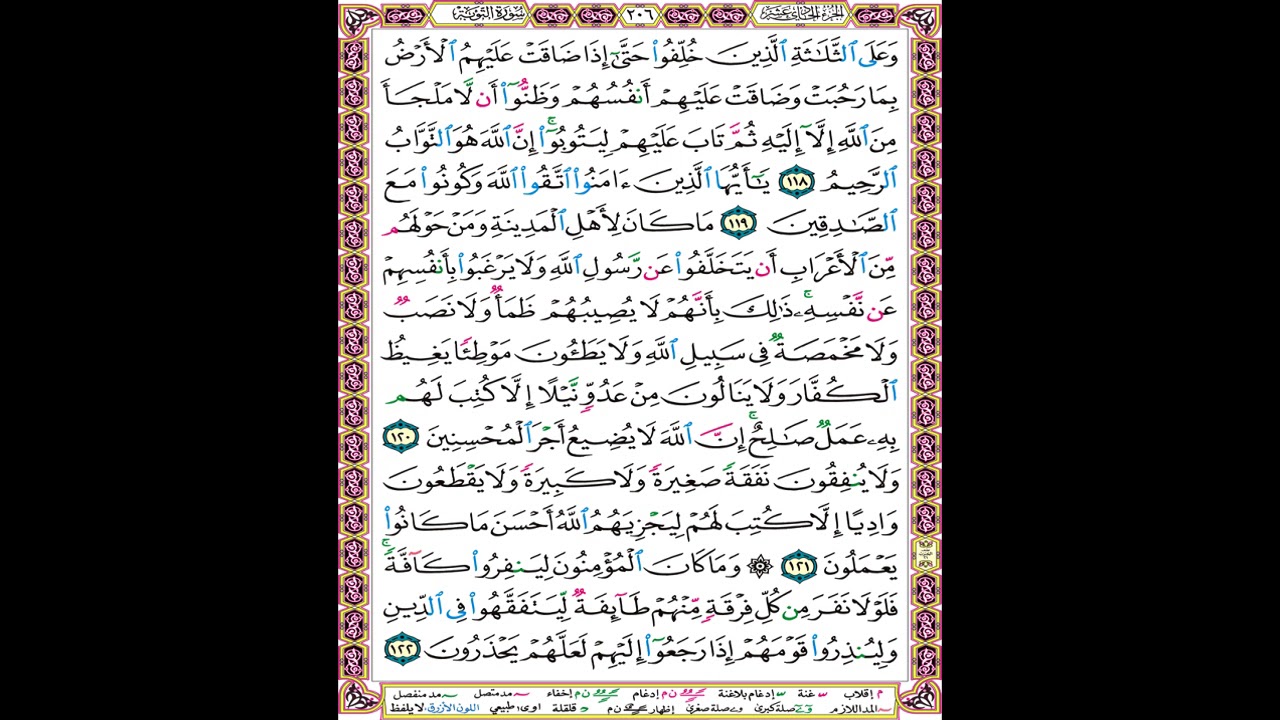 سورة التوبة ٢٠٦ الجزء الحادي عشر
وَعَلَى ٱلثَّلَـٰثَةِ ٱلَّذِينَ خُلِّفُوا۟ حَتَّىٰٓ إِذَا ضَاقَتْ عَلَيْهِمُ ٱلْأَرْضُ
بِمَا رَحُبَتْ وَضَاقَتْ عَلَيْهِمْ أَنفُسُهُمْ وَظَنُّوٓا۟ أَن لَّا مَلْجَأَ
مِنَ ٱللَّهِ إِلَّآ إِلَيْهِ ثُمَّ تَابَ عَلَيْهِمْ لِيَتُوبُوٓا۟ ۚ إِنَّ ٱللَّهَ هُوَ ٱلتَّوَّابُ
ٱلرَّحِيمُ ١١٨ يَـٰٓأَيُّهَا ٱلَّذِينَ ءَامَنُوا۟ ٱتَّقُوا۟ ٱللَّهَ وَكُونُوا۟ مَعَ
ٱلصَّـٰدِقِينَ ١١٩ مَا كَانَ لِأَهْلِ ٱلْمَدِينَةِ وَمَنْ حَوْلَهُم
مِّنَ ٱلْأَعْرَابِ أَن يَتَخَلَّفُوا۟ عَن رَّسُولِ ٱللَّهِ وَلَا يَرْغَبُوا۟ بِأَنفُسِهِمْ
عَن نَّفْسِهِۦ ۚ ذَٰلِكَ بِأَنَّهُمْ لَا يُصِيبُهُمْ ظَمَأٌ وَلَا نَصَبٌ
وَلَا مَخْمَصَةٌ فِى سَبِيلِ ٱللَّهِ وَلَا يَطَـُٔونَ مَوْطِئًا يَغِيظُ
ٱلْكُفَّارَ وَلَا يَنَالُونَ مِنْ عَدُوٍّ نَّيْلًا إِلَّا كُتِبَ لَهُم
بِهِۦ عَمَلٌ صَـٰلِحٌ ۚ إِنَّ ٱللَّهَ لَا يُضِيعُ أَجْرَ ٱلْمُحْسِنِينَ ١٢٠
وَلَا يُنفِقُونَ نَفَقَةً صَغِيرَةً وَلَا كَبِيرَةً وَلَا يَقْطَعُونَ
وَادِيًا إِلَّا كُتِبَ لَهُمْ لِيَجْزِيَهُمُ ٱللَّهُ أَحْسَنَ مَا كَانُوا۟
يَعْمَلُونَ ١٢١ ۞ وَمَا كَانَ ٱلْمُؤْمِنُونَ لِيَنفِرُوا۟ كَآفَّةً ۚ
فَلَوْلَا نَفَرَ مِن كُلِّ فِرْقَةٍ مِّنْهُمْ طَآئِفَةٌ لِّيَتَفَقَّهُوا۟ فِى ٱلدِّينِ
وَلِيُنذِرُوا۟ قَوْمَهُمْ إِذَا رَجَعُوٓا۟ إِلَيْهِمْ لَعَلَّهُمْ يَحْذَرُونَ ١٢٢
م إقلاب غنة إدغام بلاغنة ن م إدغام ن م إخفاء مد متصل مد منفصل
المد اللازم صلة كبرى صلة صغرى إظهار ن م قلقلة اوى طبيعي اللون الأزرق لا يلفظ